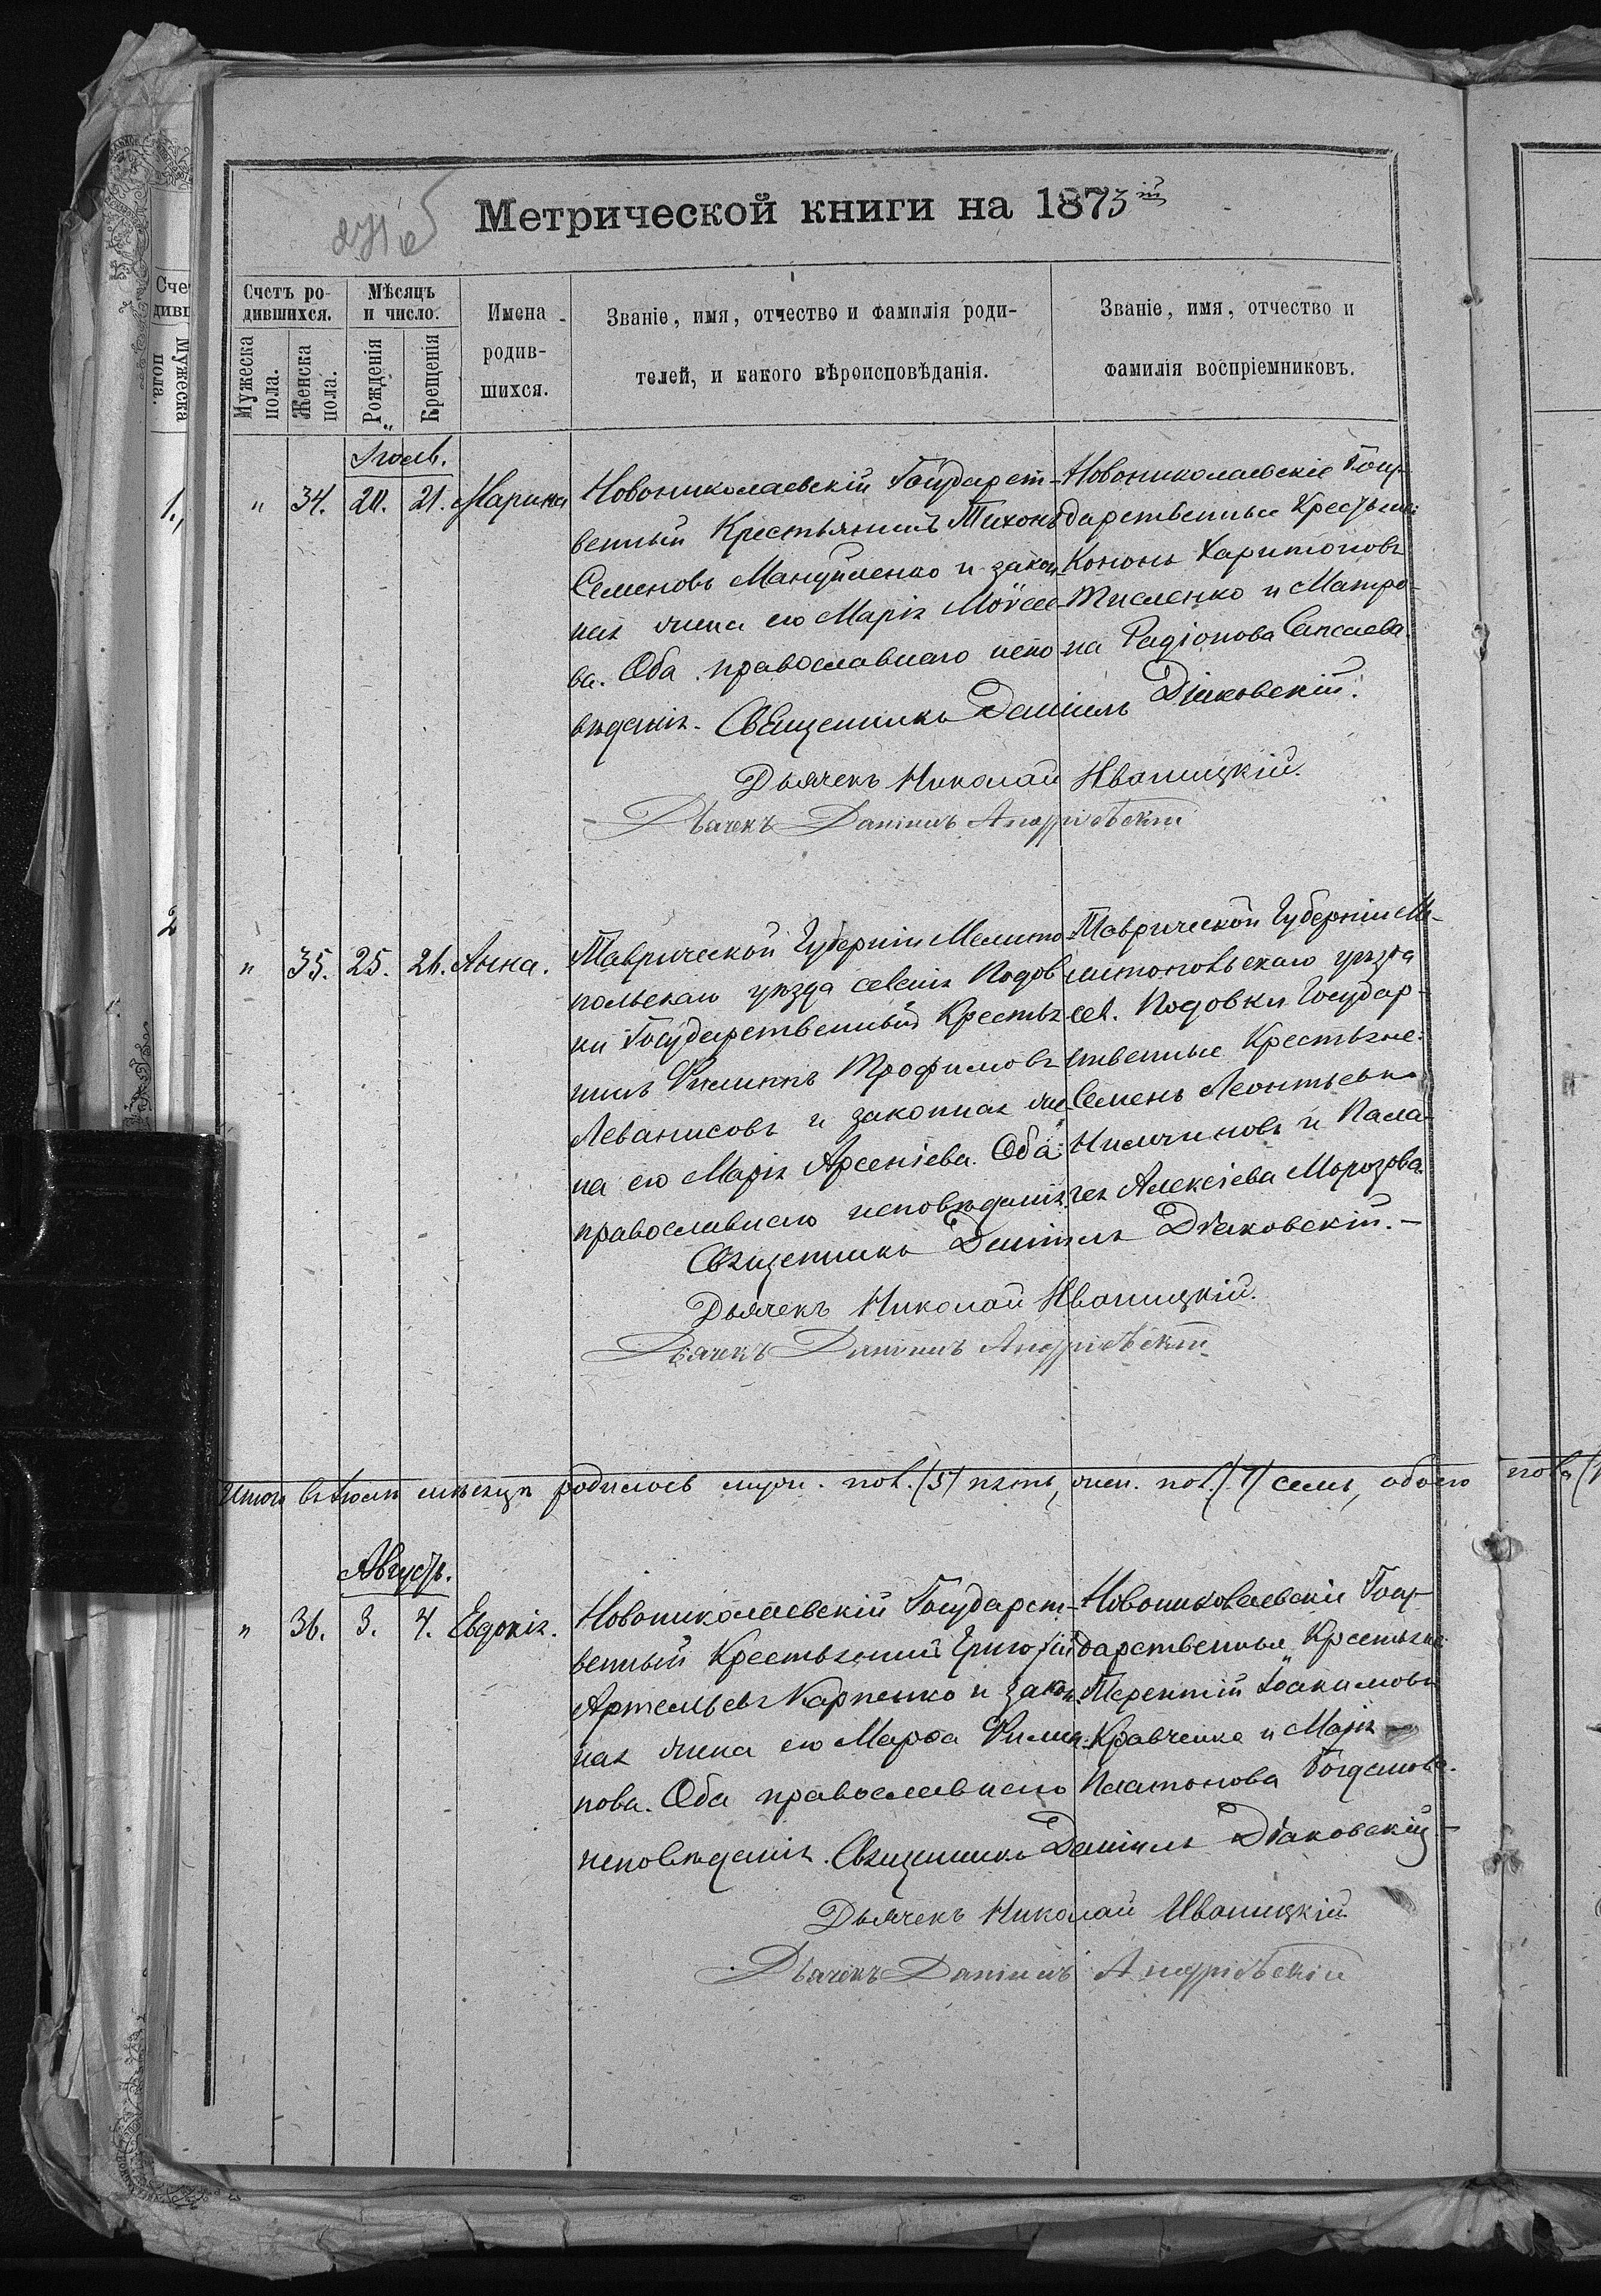 Метрической книги на 1873 й
Счетъ родившихся.
Мужеска пола.
Женска пола.
Мѣсяцъ и число.
Рожденія
Крещенія
Имена родившихся.
Званіе, имя, отчество и фамилія родителей, и какого вѣроисповѣданія.
Званіе, имя, отчество и фамилія воспріемниковъ.
Іюль.
" 34. 20. 21. Марина
Новониколаевскій Государст-
венный Крестьянинъ Тихонъ
Семеновъ Мануйленко и закон-
ная жена его Марія Моѵсее-
ва. Оба православнаго испо-
вѣданія.
Новониколаевскіе Госу-
дарственные Крестьяне:
Кононъ Харитоновъ
Тисленко и Матро-
на Радіонова Сапсаева.
Священникъ Даніилъ Діяковскій.
Дьячекъ Николай Иваницкій.
Дьячекъ Даніилъ Андріевскій
" 35. 25. 26. Анна.
Таврической Губерніи Мелито-
польскаго уѣзда селенія Подов-
ки Государственный Крестья-
нинъ Филиппъ Трофимовъ
Леванисовъ и законная же-
на его Марія Арсеніева. Оба
православнаго исповѣданія.
Таврической Губерніи Ме-
литопольскаго уѣзда
сел. Подовки Государ-
ственные Крестьяне:
Семенъ Леонтьевъ
и Пала-
гея Алексіева Морозова.
Священникъ Даніилъ Діяковскій.
Дьячекъ Николай Иваницкій.
Дьячекъ Даніилъ Андріевскій
Итого въ Іюлѣ мѣсяцѣ родилось муж. пол. (5) пять, жен. пол. (7) семь, обоего пола
Августъ.
" 36. 3. 4. Евдокія.
Новониколаевскій Государст-
венный Крестьянинъ Григорій
Артемьевъ Карпенко и закон-
ная жена его Марфа Филип-
пова. Оба православнаго
исповѣданія.
Новониколаевскіе Госу-
дарственные Крестьяне:
Терентій Іоакимовъ
Кравченко и Марія
Платонова Богданова.
Священникъ Даніилъ Діаковскій
Дьячекъ Николай Иваницкій
Дьячекъ Даніилъ Андріевскій